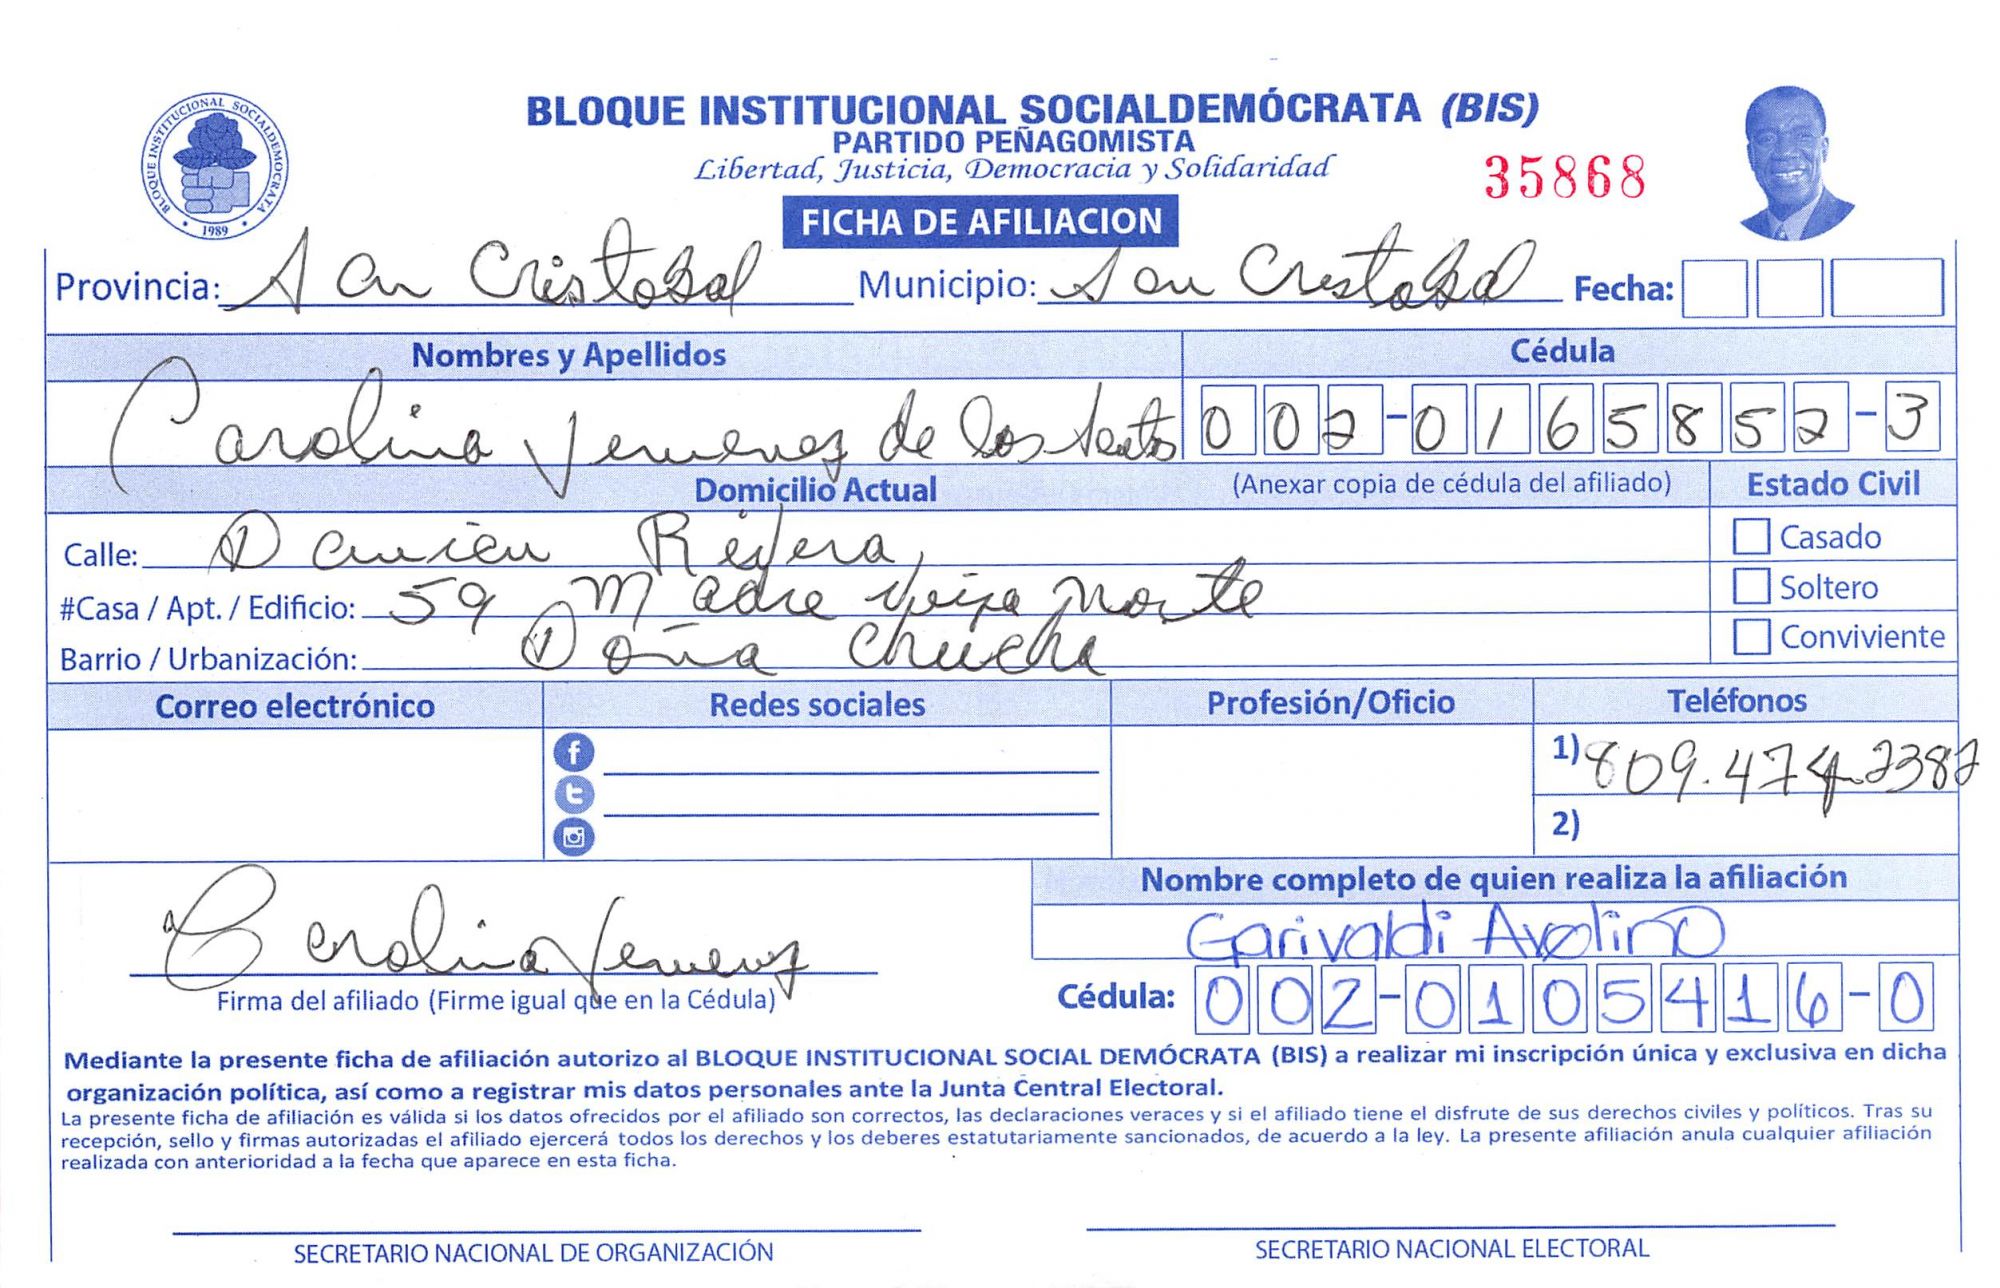 BLOQUE INSTITUCIONAL SOCIALDEMOCRATA
1989
BLOQUE INSTITUCIONAL SOCIALDEMÓCRATA (BIS)
PARTIDO PEÑAGOMISTA
Libertad, Justicia, Democracia y Solidaridad
35868
FICHA DE AFILIACION
Provincia: San Cristobal Municipio: San Cristobal Fecha:
Nombres y Apellidos Cédula
Carolina Jemenez de los Santos 002-0165852-3
Domicilio Actual (Anexar copia de cédula del afiliado) Estado Civil
Calle: Damien Rivera, Casado
#Casa / Apt. / Edificio: 59 Madre Vieja Norte Soltero
Barrio / Urbanización: Doña Chucha Conviviente
Correo electrónico Redes sociales Profesión/Oficio Teléfonos
1) 809.474.2382
2)
Nombre completo de quien realiza la afiliación
Garivaldi Avelino
Carolina Jemenez
Firma del afiliado (Firme igual que en la Cédula) Cédula: 002-0105416-0
Mediante la presente ficha de afiliación autorizo al BLOQUE INSTITUCIONAL SOCIAL DEMÓCRATA (BIS) a realizar mi inscripción única y exclusiva en dicha
organización política, así como a registrar mis datos personales ante la Junta Central Electoral.
La presente ficha de afiliación es válida si los datos ofrecidos por el afiliado son correctos, las declaraciones veraces y si el afiliado tiene el disfrute de sus derechos civiles y políticos. Tras su
recepción, sello y firmas autorizadas el afiliado ejercerá todos los derechos y los deberes estatutariamente sancionados, de acuerdo a la ley. La presente afiliación anula cualquier afiliación
realizada con anterioridad a la fecha que aparece en esta ficha.
SECRETARIO NACIONAL DE ORGANIZACIÓN SECRETARIO NACIONAL ELECTORAL